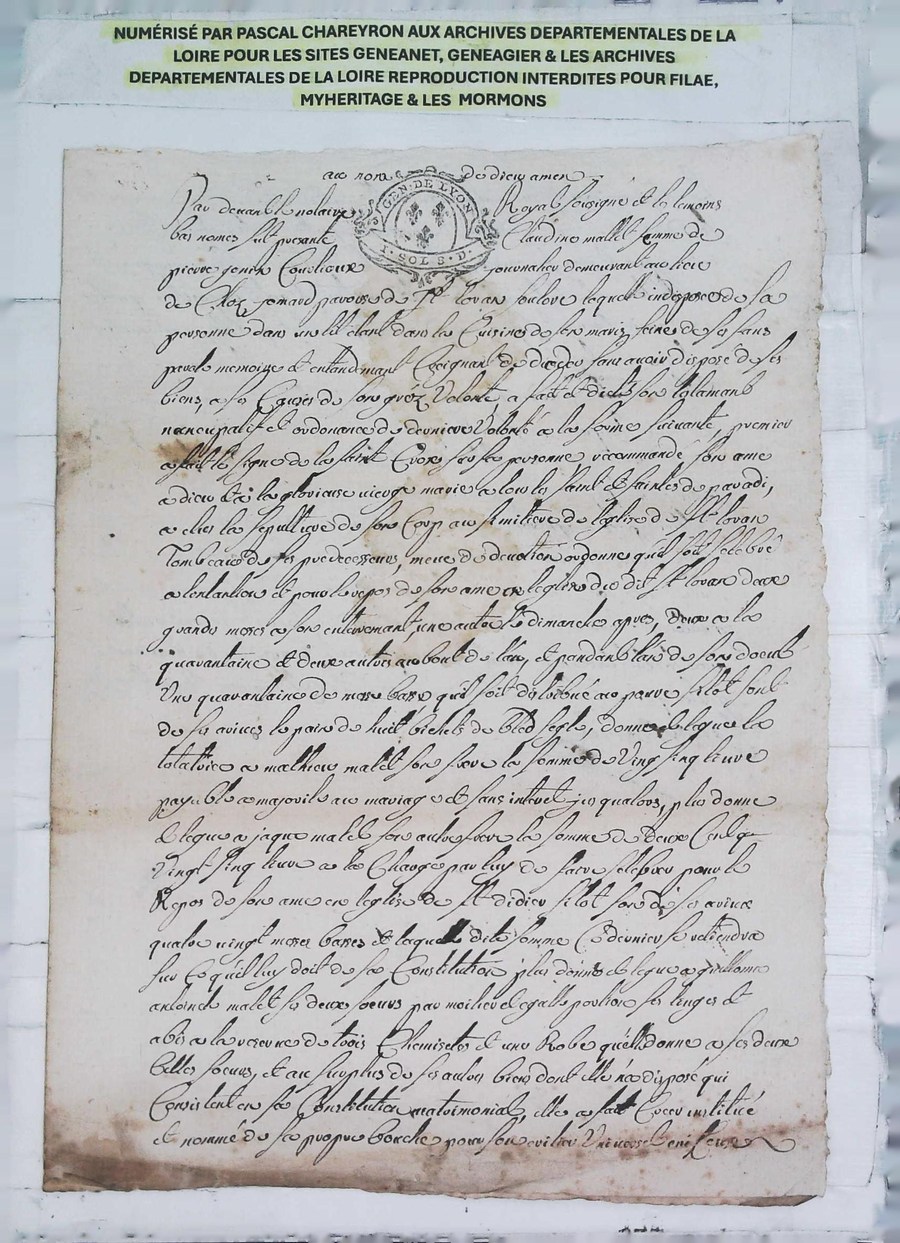 NUMÉRISÉ PAR PASCAL CHAREYRON AUX ARCHIVES DEPARTEMENTALES DE LA
LOIRE POUR LES SITES GENEANET, GENEAGIER & LES ARCHIVES
DEPARTEMENTALES DE LA LOIRE REPRODUCTION INTERDITES POUR FILAE,
MYHERITAGE & LES MORMONS
au nom de dieu amen
GEN. DE LYON
1. SOL 8. D.
Par devant le notaire Royal sousigne et les temoins
bas nomes fut presante Claudine mallet femme de
pierre journalier demeurant au lieu
de paroisse de St lequelle indisposee de sa
personne dans un lit etant dans la Cuisine de son maris, saine de ses sans
parole memoire et entandemant Creignant de sans avoir disposé de ses
biens, a sa de son gréz Volonté, a fait et dicté son tetamant
noncupatif et ordonance de derniere Volonté a la forme suivante, premier
a fait le signe de la saint Croix sur sa personne recommandé son ame
a dieu et a la glorieuse vierge marie a tout les saint et saintes de paradi,
a elut la sepulture de son Corp au simitiere de leglise de St
Tombeaux de ses predecesseurs, meue de devotion ordonne quil soit selebré
a lentantion et pour le repos de son ame en leglise du dit St deux
grande messes a son enterremant, une autre le dimanche apres, deux a la
quarantaine et deux autres au bout de lan, et pandant lan de son doeuil
Une quarantaine de messe basse quil soit distribué au pauvre sitot
de ses le pain de huit bichets de bled segle, donne et legue la
tetatrice a mathieu malet son frere la somme de Ving sinq livre
payable a majorité ou mariage et sans interet jusqualors, plus donne
et legue a jaque malet son autre frere la somme de deux Cent
Vingt sinq livre a la Charge par luy de faire selebrer pour le
Repos de son ame en leglise de St didier sitot son
quatre vingt messes basses et laquelle dite somme Ce dernier se retiendra
sur Ce quil luy doit de sa Constitution, plus donne et legue a
antoinete malet ses deux soeurs par moitier et egalle portion ses linges et
abis a la reserve de trois Chemisetes et une Robe quelle donne a ses deux
belles soeurs, et au surplus de ses autres biens dont elle na disposé qui
Consistent en sa Constitution matrimonial, elle a fait Creer institué
et nommé de sa propre bouche pour son eritier Universel